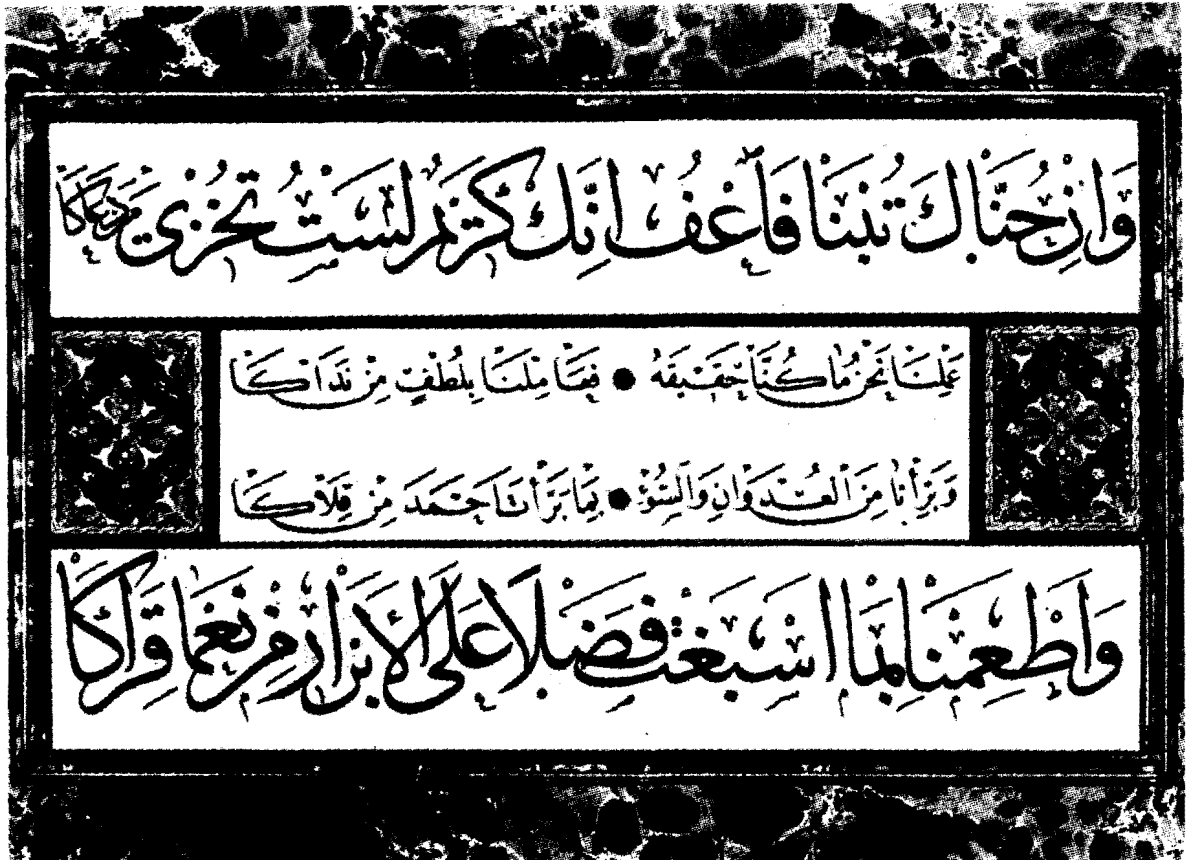 وَاِنْ خُنَّاكَ تُبْنَا فَاعْفُ اِنَّكَ كَرِيمٌ لَسْتَ تُخْزِى مَنْ
عَمِلْنَا نَحْنُ مَا كُنَّا حَقِيقَهْ ● فَعَامِلْنَا بِلُطْفٍ مِنْ نَدَاكَا
وَبَرِّأْنَا مِنَ الْعُدْوَانِ وَالسُّوْءِ ● بِمَا بَرَّأْتَ اَحْمَدَ مِنْ قِلَاكَا
وَاَطْعِمْنَا بِمَا اَسْبَغْتَ فَضْلًا عَلَى الْاَبْرَارِ مِنْ نُعْمَا قِرَاكَا